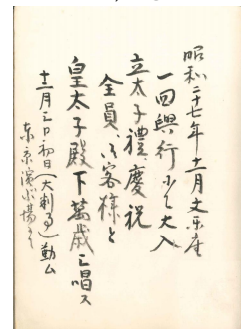 昭和二十七年十一月文楽座
一回興行ニテ大入
立太子禮慶祝
全員、御客様と
皇太子殿下萬歳三唱ス
十二月三日初日(大判事)勤ム
東京濱演場ニテ